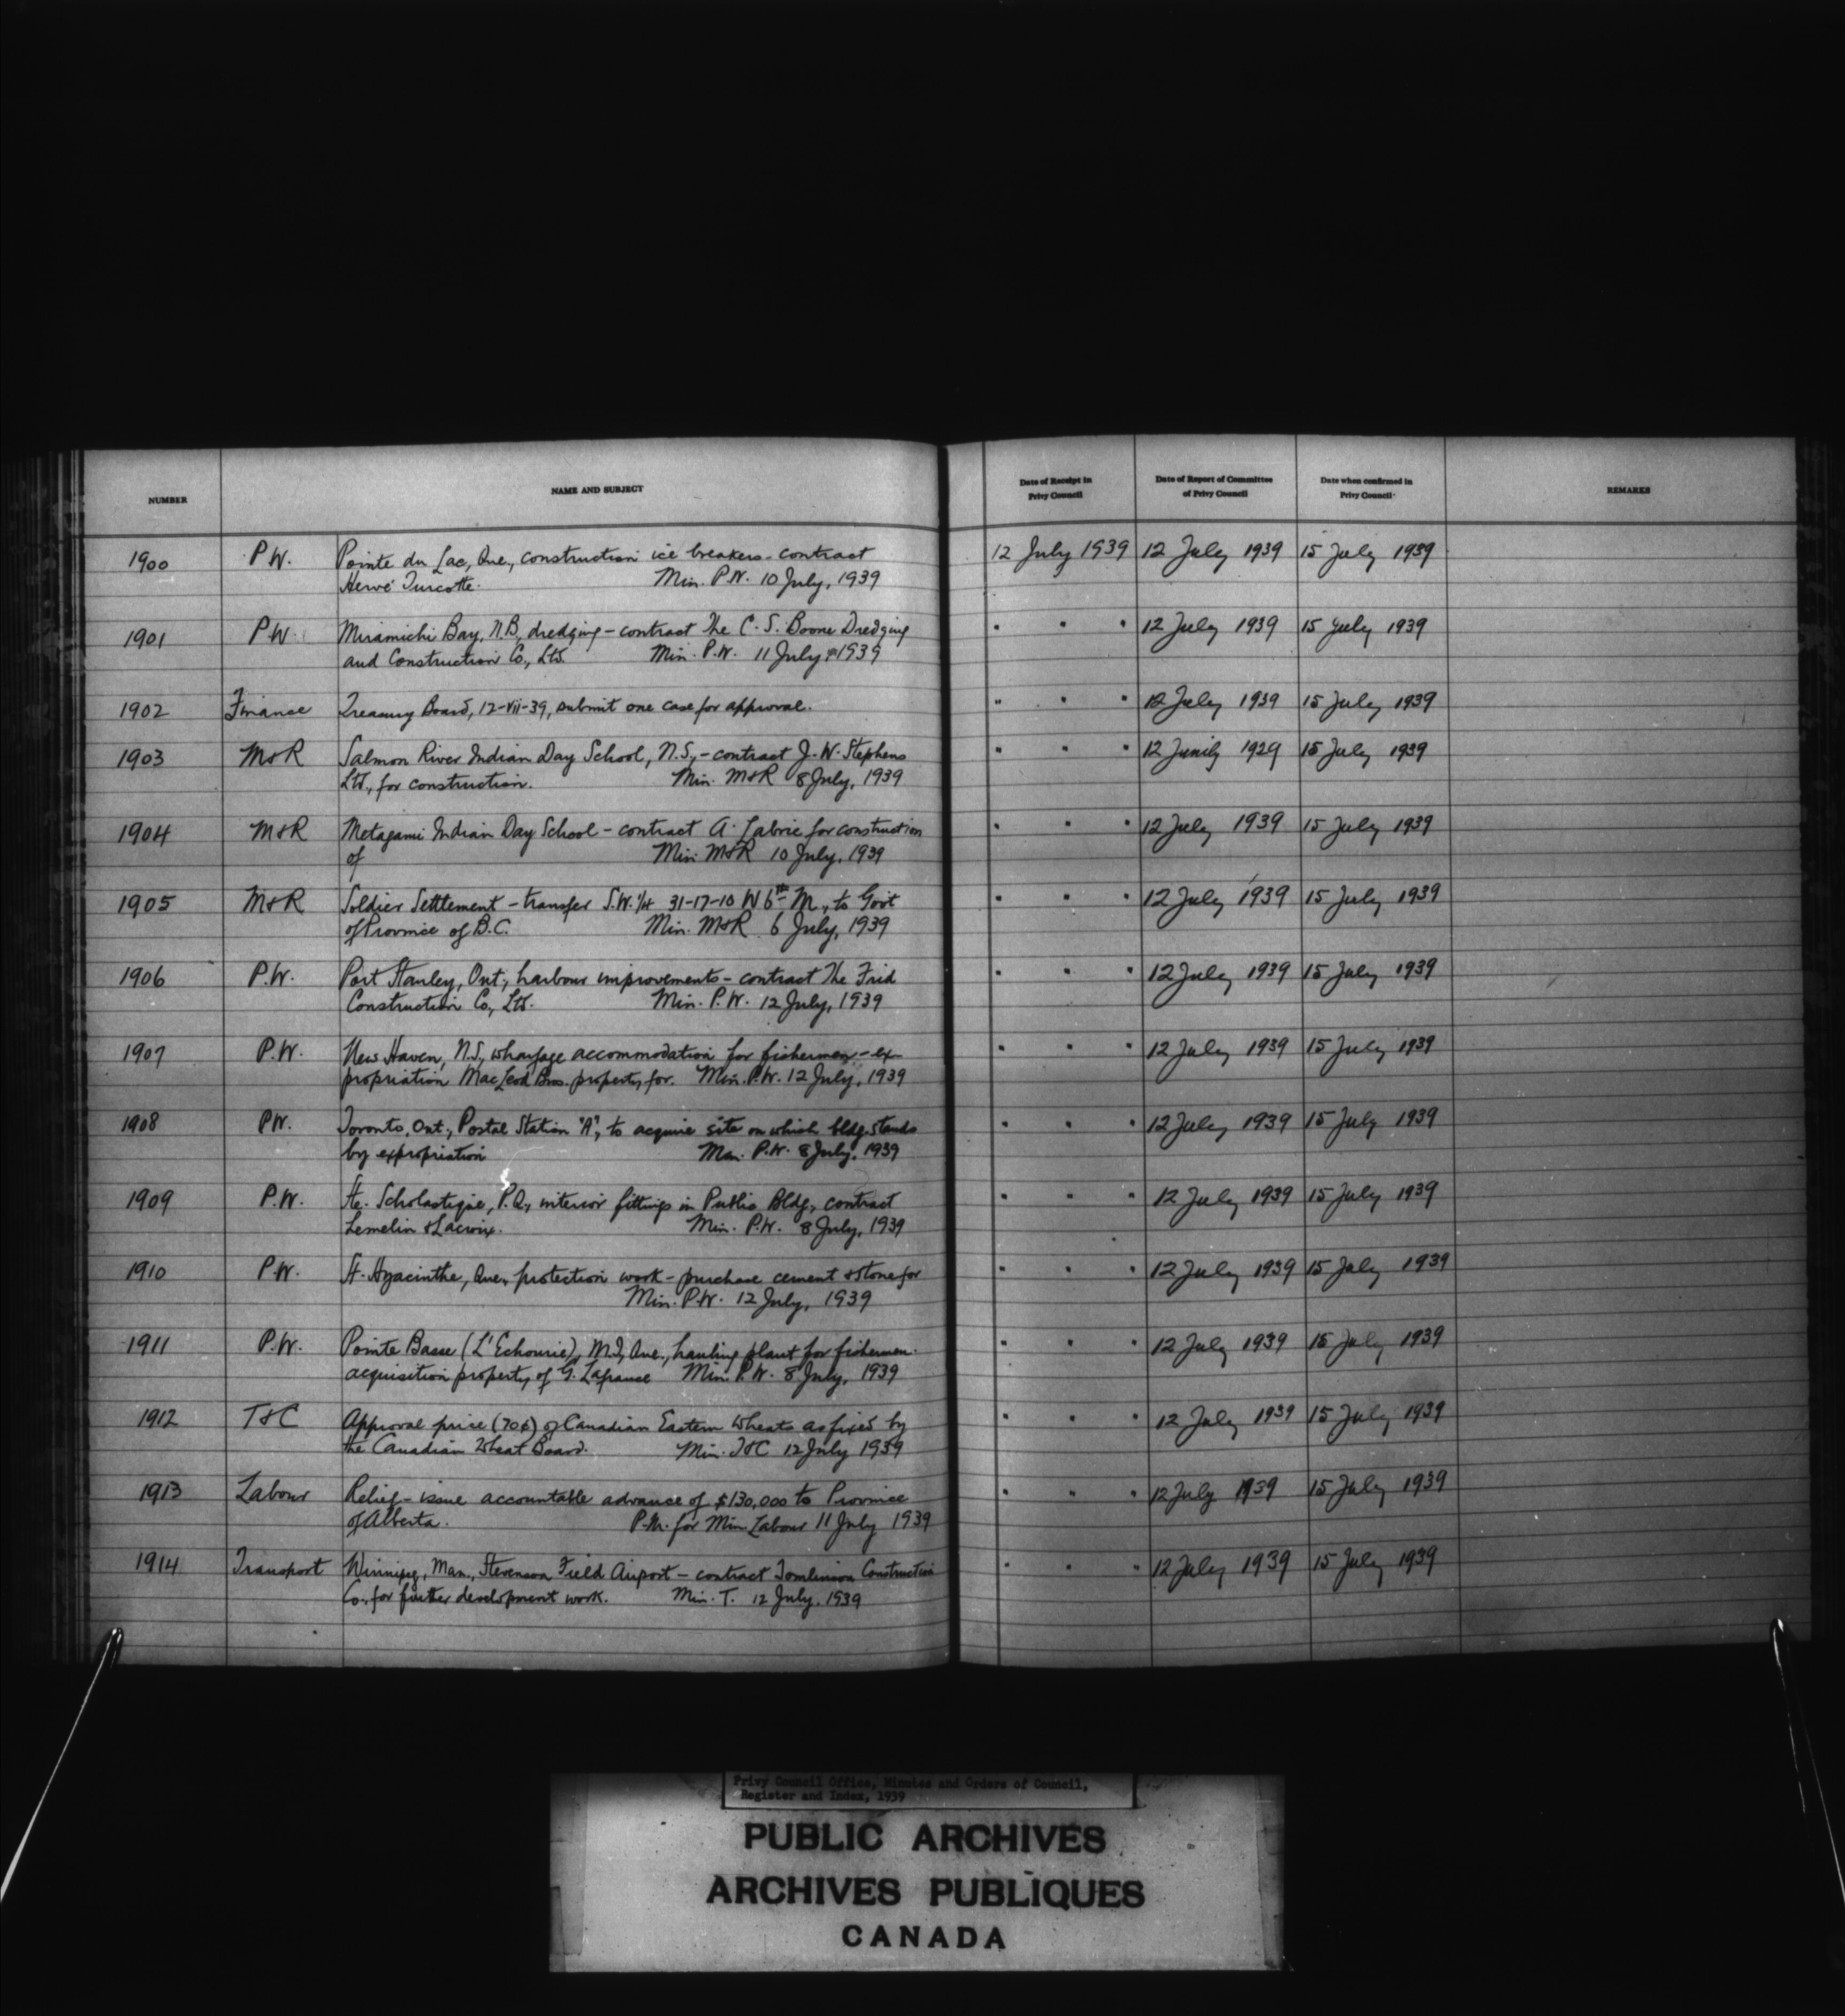 NUMBER NAME AND SUBJECT Date of Receipt in Privy Council Date of Report of Committee of Privy Council Date when confirmed in Privy Council REMARKS
1900 P.W. Pointe du Lac, Que., construction ice breakers - contract 12 July 1939 12 July 1939 15 July 1939
Hervé Turcotte. Min. P.W. 10 July, 1939
1901 P.W. Miramichi Bay, N.B., dredging - contract The C. S. Boone Dredging " " " 12 July 1939 15 July 1939
and Construction Co., Ltd. Min. P.W. 11 July, 1939
1902 Finance Treasury Board, 12-vii-39, submit one case for approval. " " " 12 July 1939 15 July 1939
1903 M&R Salmon River Indian Day School, N.S., - contract J. W. Stephens " " " 12 July 1929 15 July 1939
Ltd., for construction. Min. M&R 8 July, 1939
1904 M&R Metagami Indian Day School - contract A. Labrie for construction " " " 12 July 1939 15 July 1939
of Min. M&R 10 July, 1939
1905 M&R Soldier Settlement - transfer S.W. 1/4 31-17-10 W 6th M., to Govt " " " 12 July 1939 15 July 1939
of Province of B.C. Min. M&R 6 July, 1939
1906 P.W. Port Stanley, Ont., harbour improvements - contract The Frid " " " 12 July 1939 15 July 1939
Construction Co., Ltd. Min. P.W. 12 July, 1939
1907 P.W. New Haven, N.S., wharfage accommodation for fishermen - ex- " " " 12 July 1939 15 July 1939
propriation MacLeod Bros. property for. Min. P.W. 12 July, 1939
1908 P.W. Toronto, Ont., Postal Station "A", to acquire site on which bldg. stands " " " 12 July 1939 15 July 1939
by expropriation Min. P.W. 8 July, 1939
1909 P.W. Ste. Scholastique, P.Q., interior fittings in Public Bldg., contract " " " 12 July 1939 15 July 1939
Lemelin & Lacroix. Min. P.W. 8 July, 1939
1910 P.W. St. Hyacinthe, Que., protection work - purchase cement & stone for " " " 12 July 1939 15 July 1939
Min. P.W. 12 July, 1939
1911 P.W. Pointe Basse (L'Echourie), M.I., Que., hauling plant for fishermen - " " " 12 July 1939 15 July 1939
acquisition property of G. Lafrance Min. P.W. 8 July, 1939
1912 T&C Approval price (70¢) of Canadian Eastern Wheats as fixed by " " " 12 July 1939 15 July 1939
the Canadian Wheat Board. Min. T&C 12 July 1939
1913 Labour Relief - issue accountable advance of $130,000 to Province " " " 12 July 1939 15 July 1939
of Alberta. P.M. for Min. Labour 11 July 1939
1914 Transport Winnipeg, Man., Stevenson Field Airport - contract Tomlinson Construction " " " 12 July 1939 15 July 1939
Co., for further development work. Min. T. 12 July, 1939
Privy Council Office, Minutes and Orders of Council,
Register and Index, 1939
PUBLIC ARCHIVES
ARCHIVES PUBLIQUES
CANADA